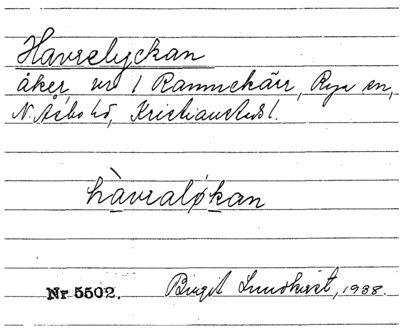 Havrelyckan
åker, nr 1 Rammekärr, Rya sn,
N. Åsbo hd, Kristianstads l.
hàvraløkan
Nr 5502. Birgit Lundkvist, 1938.